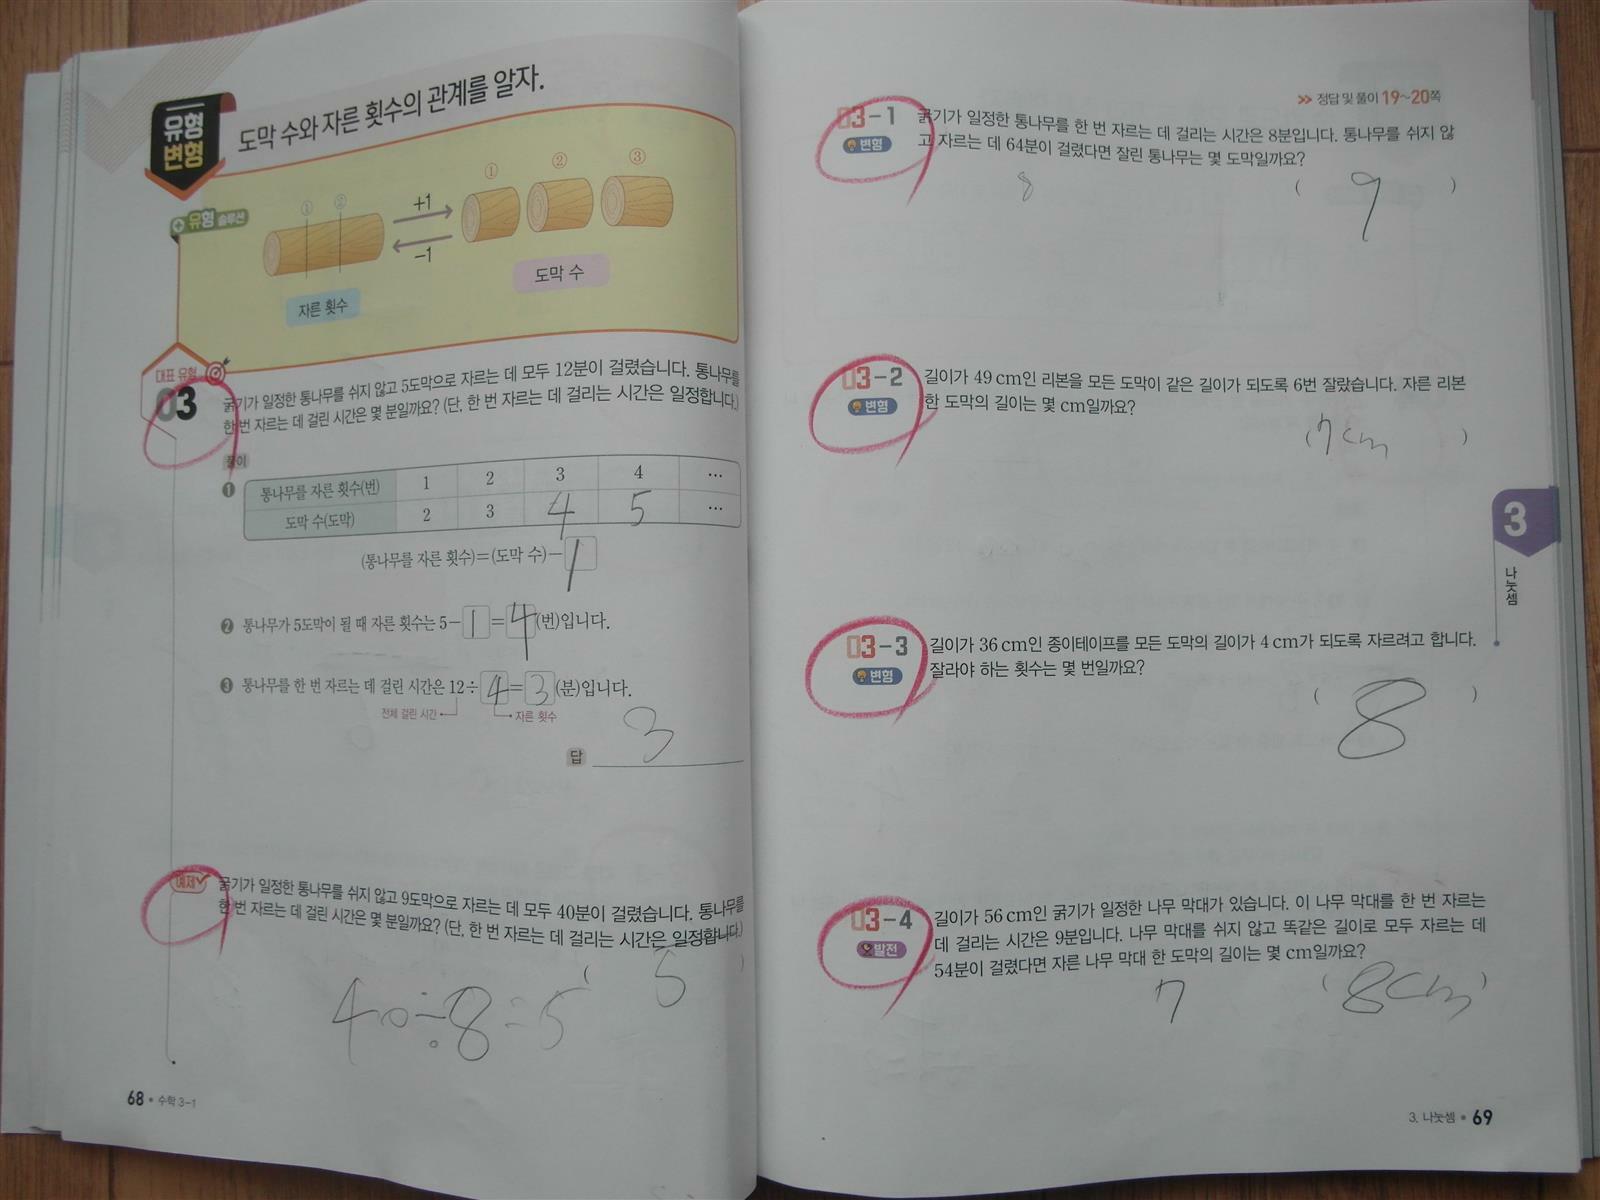 유형
변형
도막 수와 자른 횟수의 관계를 알자.
유형 솔루션
① ②
+1
-1
① ② ③
자른 횟수
도막 수
대표 유형
03
굵기가 일정한 통나무를 쉬지 않고 5도막으로 자르는 데 모두 12분이 걸렸습니다. 통나무를
한 번 자르는 데 걸린 시간은 몇 분일까요? (단, 한 번 자르는 데 걸리는 시간은 일정합니다.)
풀이
❶ 통나무를 자른 횟수(번) 1 2 3 4 …
도막 수(도막) 2 3 4 5 …
(통나무를 자른 횟수)=(도막 수)-1
❷ 통나무가 5도막이 될 때 자른 횟수는 5-1=4(번)입니다.
❸ 통나무를 한 번 자르는 데 걸린 시간은 12÷4=3(분)입니다.
전체 걸린 시간 자른 횟수
답 3
예제
굵기가 일정한 통나무를 쉬지 않고 9도막으로 자르는 데 모두 40분이 걸렸습니다. 통나무를
한 번 자르는 데 걸린 시간은 몇 분일까요? (단, 한 번 자르는 데 걸리는 시간은 일정합니다.)
( 5 )
40÷8=5
68 • 수학 3-1
정답 및 풀이 19~20쪽
03-1
변형
굵기가 일정한 통나무를 한 번 자르는 데 걸리는 시간은 8분입니다. 통나무를 쉬지 않
고 자르는 데 64분이 걸렸다면 잘린 통나무는 몇 도막일까요?
8
( 9 )
03-2
변형
길이가 49 cm인 리본을 모든 도막이 같은 길이가 되도록 6번 잘랐습니다. 자른 리본
한 도막의 길이는 몇 cm일까요?
( 7cm )
03-3
변형
길이가 36 cm인 종이테이프를 모든 도막의 길이가 4 cm가 되도록 자르려고 합니다.
잘라야 하는 횟수는 몇 번일까요?
( 8 )
03-4
발전
길이가 56 cm인 굵기가 일정한 나무 막대가 있습니다. 이 나무 막대를 한 번 자르는
데 걸리는 시간은 9분입니다. 나무 막대를 쉬지 않고 똑같은 길이로 모두 자르는 데
54분이 걸렸다면 자른 나무 막대 한 도막의 길이는 몇 cm일까요?
7
( 8cm )
3
나눗셈
3. 나눗셈 • 69